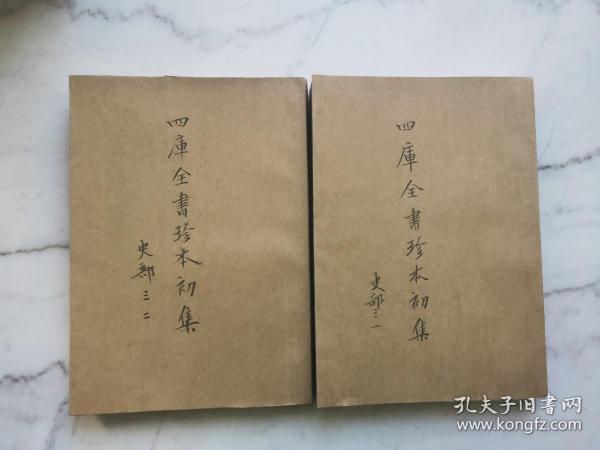 四庫全書珍本初集
史部三二
四庫全書珍本初集
史部三一
孔夫子旧書网
www.kongfz.com